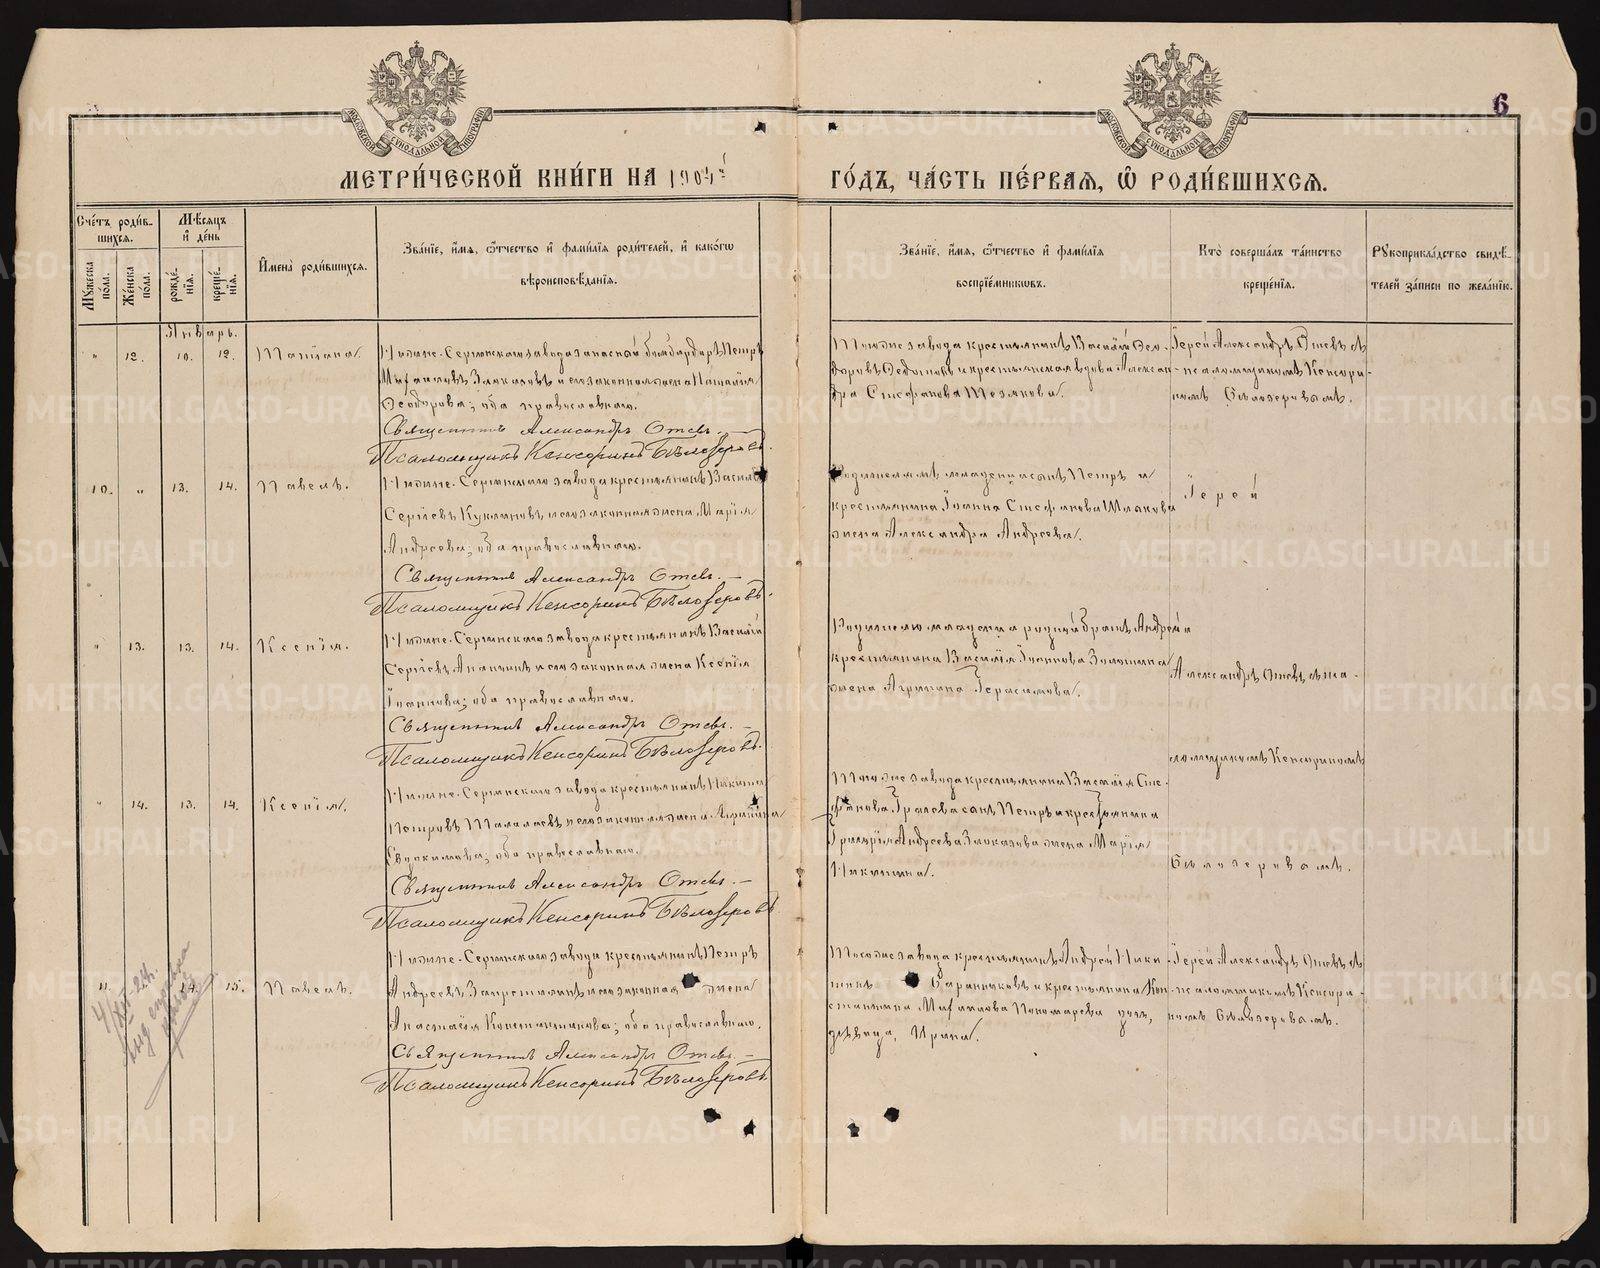 6
МЕТРИ́ЧЕСКОЙ КНИ́ГИ НА 190
ГО́ДЪ, ЧА́СТЬ ПЕ́РВАѦ, Ѡ РОДИ́ВШИХСѦ.
Сче́тъ роди́в-
шихсѧ.
Мѣ́сѧцъ
и҆ де́нь
И҆мена̀ роди́вшихсѧ.
Зва́нїе, и҆́мѧ, ѻ҆́тчество и҆ фами́лїѧ роди́телей, и҆ како́гѡ
вѣроисповѣ́данїѧ.
Зва́нїе, и҆́мѧ, ѻ҆́тчество и҆ фами́лїѧ
воспрїе́мниковъ.
Кто̀ соверша́лъ та́инство
креще́нїѧ.
Рꙋкоприкла́дство свидѣ́-
телей за́писи по жела́нїю.
Мꙋ́жеска
по́ла.
Же́нска
по́ла.
рожде́-
нїѧ.
креще́-
нїѧ.
Январь.
" 12. 10. 12. Татiана.
Нижне-Сергинскаго завода запасной бомбардиръ Петръ
Михаиловъ Злоказовъ и его законная жена Наталiя
Феодорова; оба православные.
Священникъ Александръ Отевъ.
Псаломщикъ Кенсоринъ Бѣлозеровъ.
Того же завода крестьянинъ Василiй Фео-
доровъ и крестьянская вдова Алексан-
дра Стефанова
Iерей Александръ Отевъ съ
псаломщикомъ Кенсори-
номъ Бѣлозеровымъ.
10. " 13. 14. Павелъ.
Нижне-Сергинскаго завода крестьянинъ Василiй
Сергiевъ и его законная жена Марiя
Андреева; оба православные.
Священникъ Александръ Отевъ.
Псаломщикъ Кенсоринъ Бѣлозеровъ.
сынъ Петръ и
крестьянина Iоанна Стефанова
жена Александра Андреева.
Iерей
" 13. 13. 14. Ксенiя.
Нижне-Сергинскаго завода крестьянинъ Василiй
Сергiевъ и его законная жена Ксенiя
Iоаннова; оба православные.
Священникъ Александръ Отевъ.
Псаломщикъ Кенсоринъ Бѣлозеровъ.
родной братъ Андрей и
крестьянина Василiя Iоаннова
жена Агрипина Герасимова.
Александръ Отевъ съ пса-
" 14. 13. 14. Ксенiя.
Нижне-Сергинскаго завода крестьянинъ Никита
Петровъ и его законная жена
Евдокимова; оба православные.
Священникъ Александръ Отевъ.
Псаломщикъ Кенсоринъ Бѣлозеровъ.
Того же завода крестьянина Василiя Сте-
фанова сынъ Петръ и крестьянина
Григорiя Андреева Злоказова жена Марiя
Никитина.
ломщикомъ Кенсориномъ
Бѣлозеровымъ.
11. 14. 15. Павелъ.
Нижне-Сергинскаго завода крестьянинъ Петръ
Андреевъ и его законная жена
Анастасiя Константинова; оба православные.
Священникъ Александръ Отевъ.
Псаломщикъ Кенсоринъ Бѣлозеровъ.
Того же завода крестьянинъ Андрей Ники-
тинъ Баранниковъ и крестьянина Кон-
стантина Михаилова Пономарева дочь,
дѣвица, Ирина.
Iерей Александръ Отевъ съ
псаломщикомъ Кенсори-
номъ Бѣлозеровымъ.
METRIKI.GASO-URAL.RU